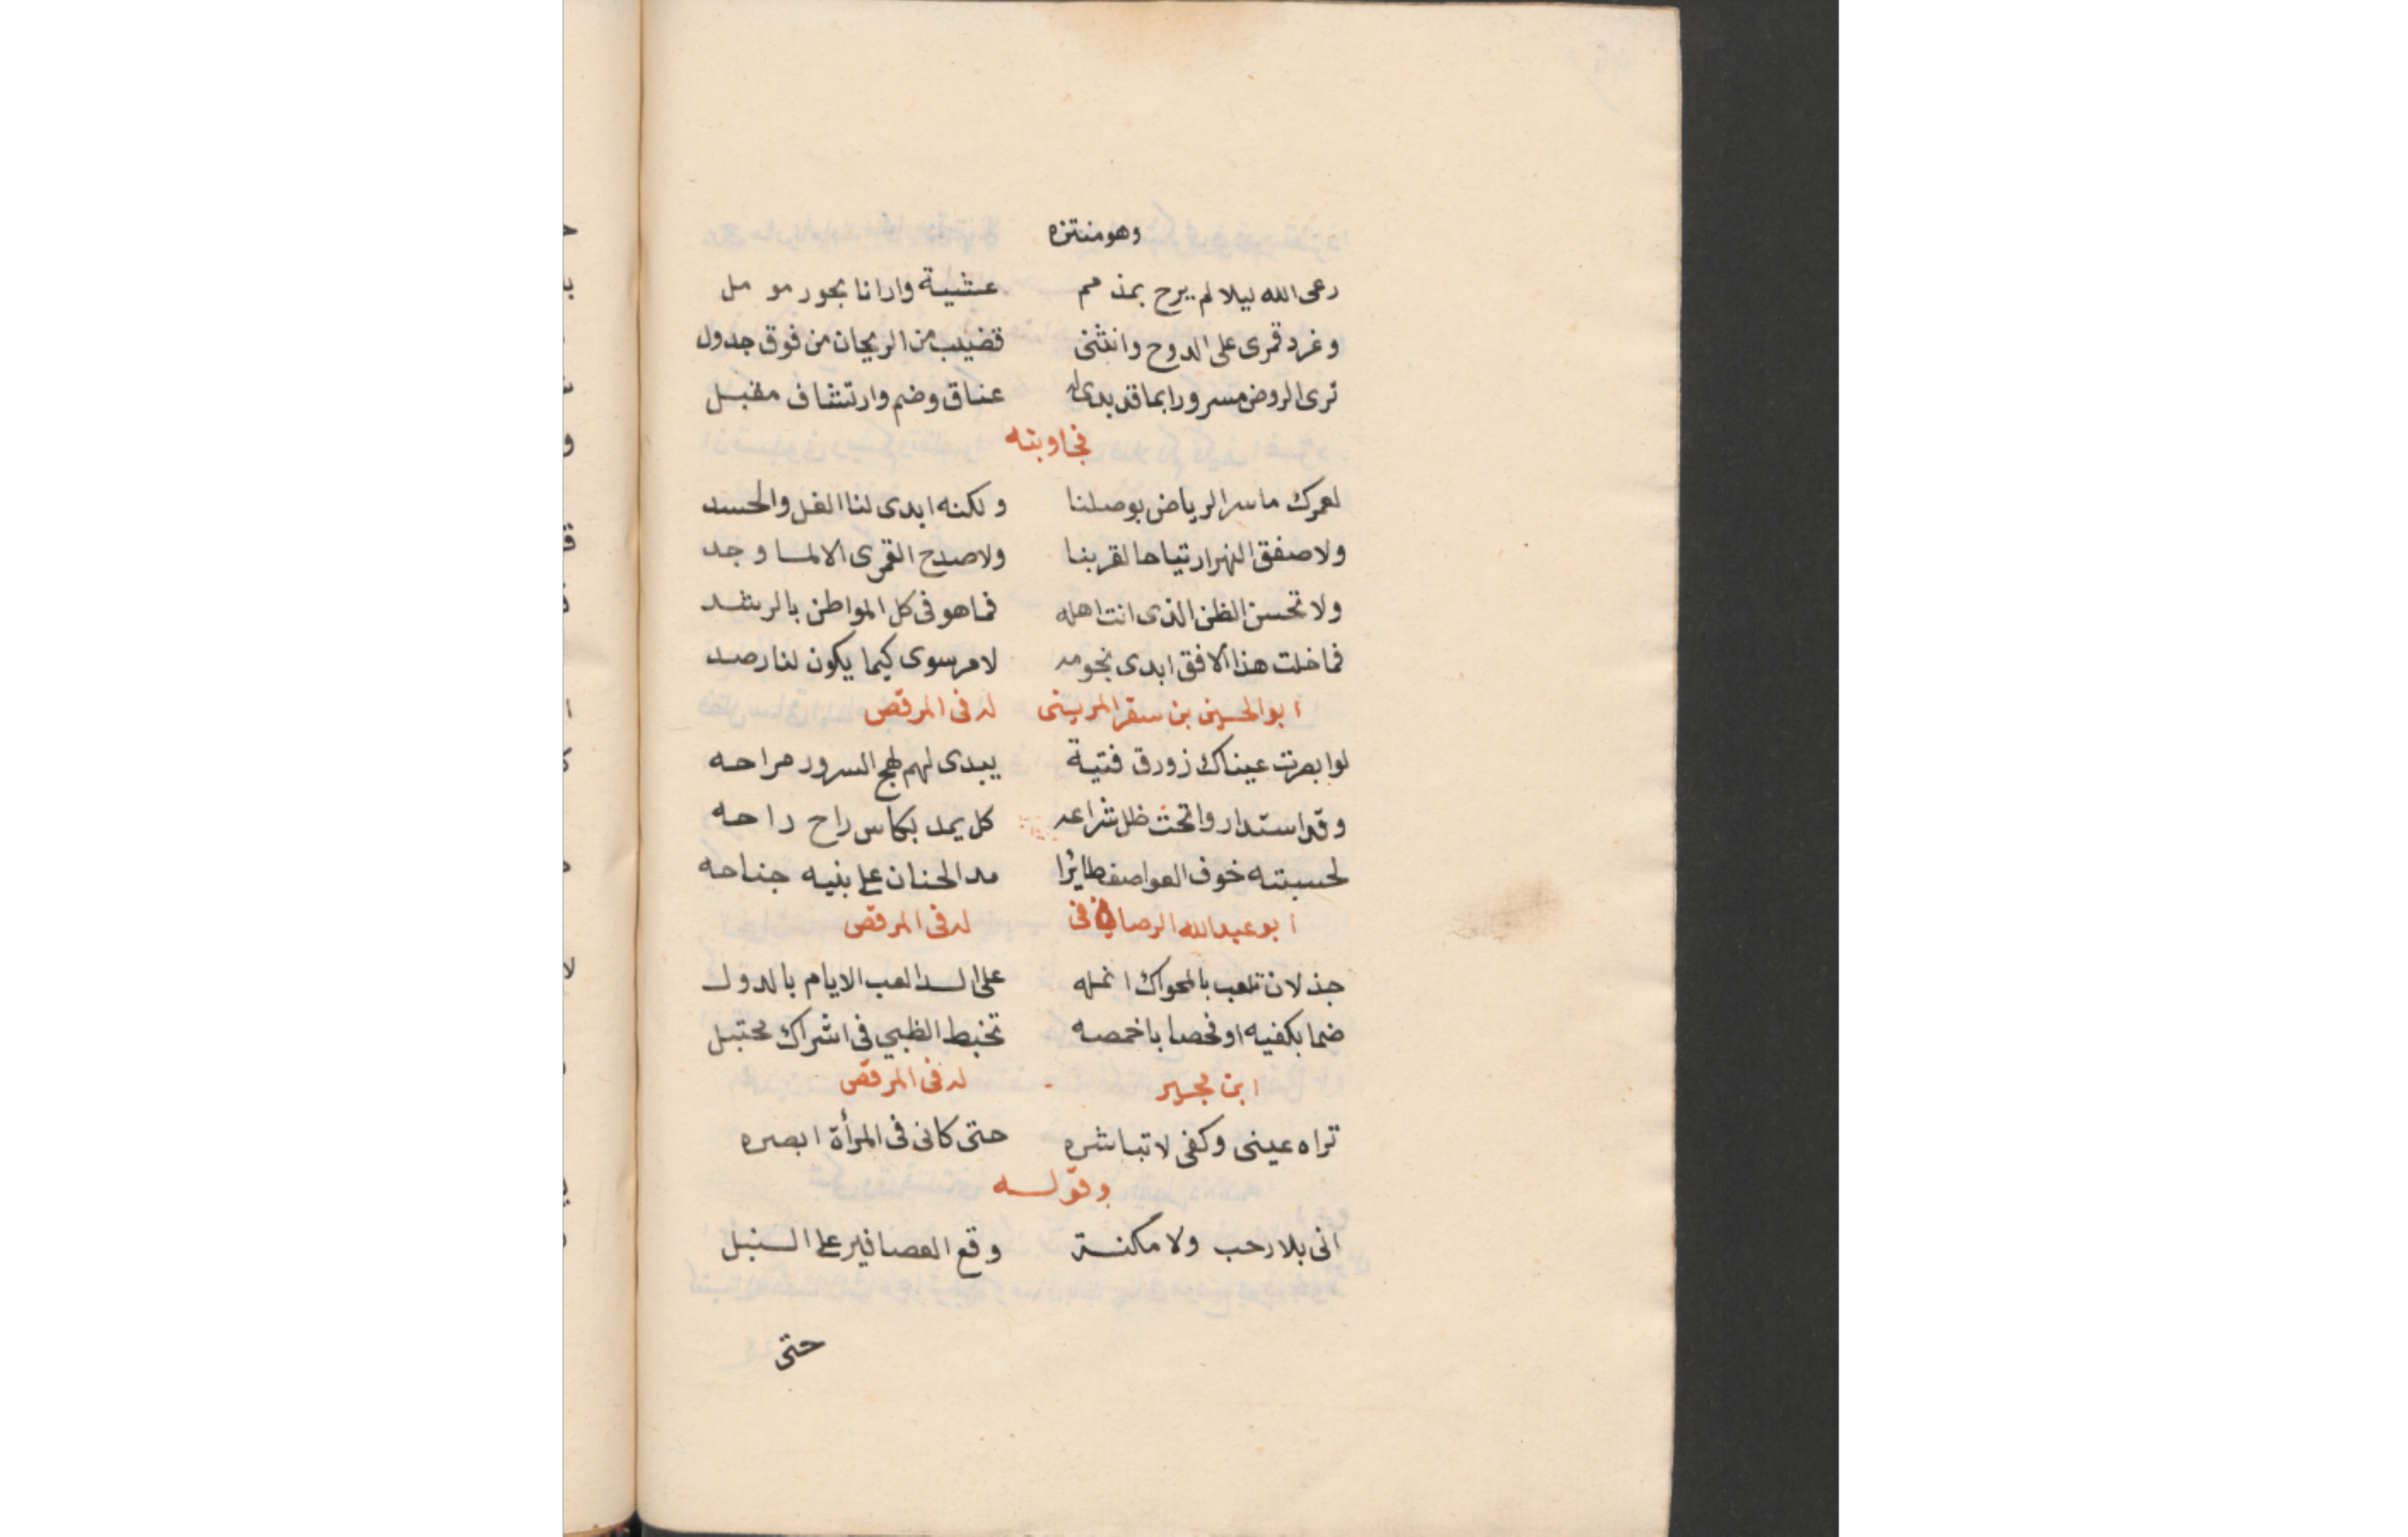 وهو منتزه
رعى الله ليلا لم يرح بمذمم عشية وارانا بحور مومل
وغرد قمرى على الدوح وانثنى قضيب من الريحان من فوق جدول
ترى الروض مسرورا بما قد بدى له عناق وضم وارتشاف مقبل
فجاوبته
لعمرك ما سر الرياض بوصلنا ولكنه ابدى لنا الغل والحسد
ولا صفق النهر ارتياحا لقربنا ولا صدح القمرى الا لما وجد
ولا تحسن الظن الذى انت اهله فما هو فى كل المواطن بالرشد
فما خلت هذا الافق ابدى نجومه لامر سوى كيما يكون لنا رصد
ابو الحسين بن سقر المرينى له فى المرقص
لو ابصرت عيناك زورق فتية يبدى لهم لهج السرور مراحه
وقد استداروا تحت ظل شراعه كل يمد بكاس راح راحه
لحسبته خوف العواصف طائرا مد الحنان على بنيه جناحه
ابو عبد الله الرصافى فى له فى المرقص
جذلان تلعب بالمحواك انمله على السدا لعب الايام بالدول
ضما بكفيه او فحصا باخمصه تخبط الظبي فى اشراك محتبل
ابن مجبر له فى المرقص
تراه عينى وكفى لا تباشره حتى كانى فى المرأة ابصره
وقوله
انى بلا رحب ولا مكنسة وقع العصافير على السنبل
حتى